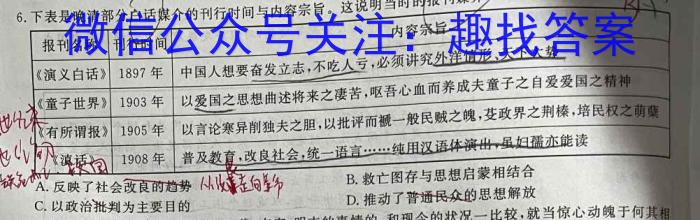 6.下表是晚清部分白话媒介的刊行时间与内容宗旨。这说明当时的报刊媒介
微信公众号关注：趣找答案
报刊名称 刊行时间 内容宗旨
《演义白话》 1897年 中国人想要奋发立志，不吃人亏，必须讲究外洋情形、天下大势
《童子世界》 1903年 以爱国之思想曲述将来之凄苦，呕吾心血而养成夫童子之自爱爱国之精神
《有所谓报》 1905年 以言论寒异削独夫之胆，以批评而褫一般民贼之魄，芟政界之荆榛，培民权之萌蘖
《滇话》 1908年 普及教育，改良社会，统一语言……纯用汉语体演出，虽妇孺亦能读
A.反映了社会改良的趋势 B.救亡图存与思想启蒙相结合
C.以政治批判为主要目的 D.推动了普通民众的思想解放
和现今的状况一比较，就当惊心动魄于何其相